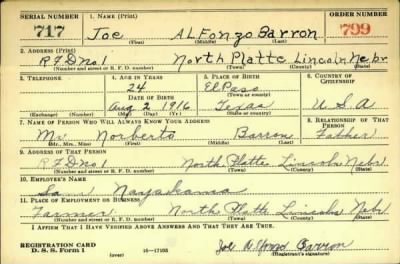 SERIAL NUMBER 1. NAME (Print) ORDER NUMBER
717 Joe ALFonzo Barron 799
(First) (Middle) (Last)
2. ADDRESS (Print)
RFD No 1 North Platte Lincoln Nebr
(Number and street or R. F. D. number) (Town) (County) (State)
3. TELEPHONE 4. AGE IN YEARS 5. PLACE OF BIRTH 6. COUNTRY OF CITIZENSHIP
24 El Paso
(Town or county)
DATE OF BIRTH
Aug 2 1916 Texas U.S.A
(Exchange) (Number) (Mo.) (Day) (Yr.) (State or country)
7. NAME OF PERSON WHO WILL ALWAYS KNOW YOUR ADDRESS 8. RELATIONSHIP OF THAT PERSON
Mr Norberto Barron Father
(Mr., Mrs., Miss) (First) (Middle) (Last)
9. ADDRESS OF THAT PERSON
RFD No 1 North Platte Lincoln Nebr
(Number and street or R. F. D. number) (Town) (County) (State)
10. EMPLOYER'S NAME
Sam
11. PLACE OF EMPLOYMENT OR BUSINESS
Farmer North Platte Lincoln Nebr
(Number and street or R. F. D. number) (Town) (County) (State)
I AFFIRM THAT I HAVE VERIFIED ABOVE ANSWERS AND THAT THEY ARE TRUE.
REGISTRATION CARD
D. S. S. Form 1 16—17105 Joe Alfonzo Barron
(over) (Registrant's signature)